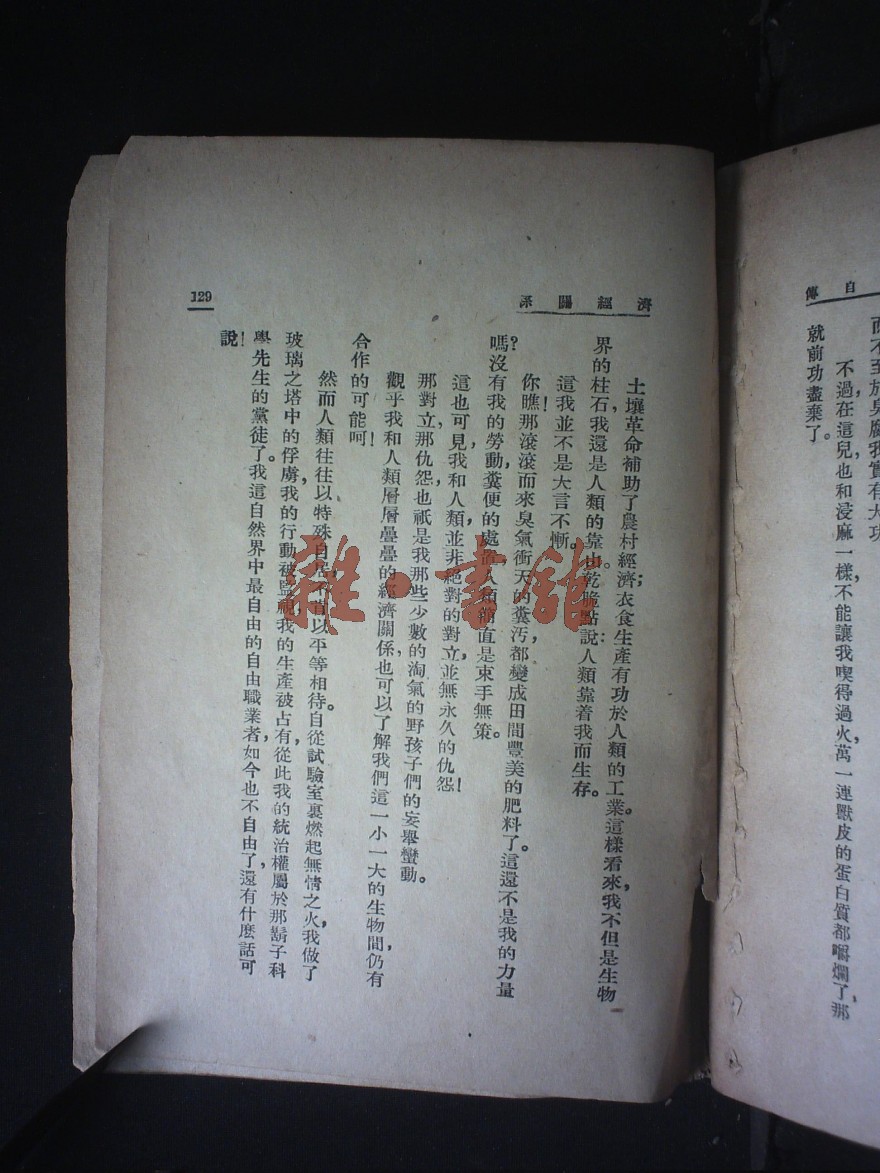 自傳
而不至於臭腐，我實有大功
不過在這兒，也和浸麻一樣，不能讓我喫得過火，萬一連獸皮的蛋白質都嚼爛了，那
就前功盡棄了。
濟經關係
土壤革命補助了農村經濟；衣食生產有功於人類的工業。這樣看來，我不但是生物
界的柱石，我還是人類的靠山。乾脆點說：人類靠着我而生存。
這我並不是大言不慚。
你瞧！那滾滾而來臭氣衝天的糞汚，都變成田間豐美的肥料了。這還不是我的力量
嗎？沒有我的勞動，糞便的處置，人類簡直是束手無策。
這也可見，我和人類，並非絕對的對立，並無永久的仇怨！
那對立，那仇怨，也祇是我那些少數的淘氣的野孩子們的妄舉蠻動。
觀乎我和人類層層疊疊的經濟關係，也可以了解我們這一小一大的生物間，仍有
合作的可能呵！
然而人類往往以特殊自居，不肯以平等相待。自從試驗室裏燃起無情之火，我做了
玻璃之塔中的俘虜，我的行動被監視，我的生產被占有，從此我的統治權屬於那鬍子科
學先生的黨徒了。我這自然界中最自由的自由職業者，如今也不自由了，還有什麽話可
說！
129
雜·書館